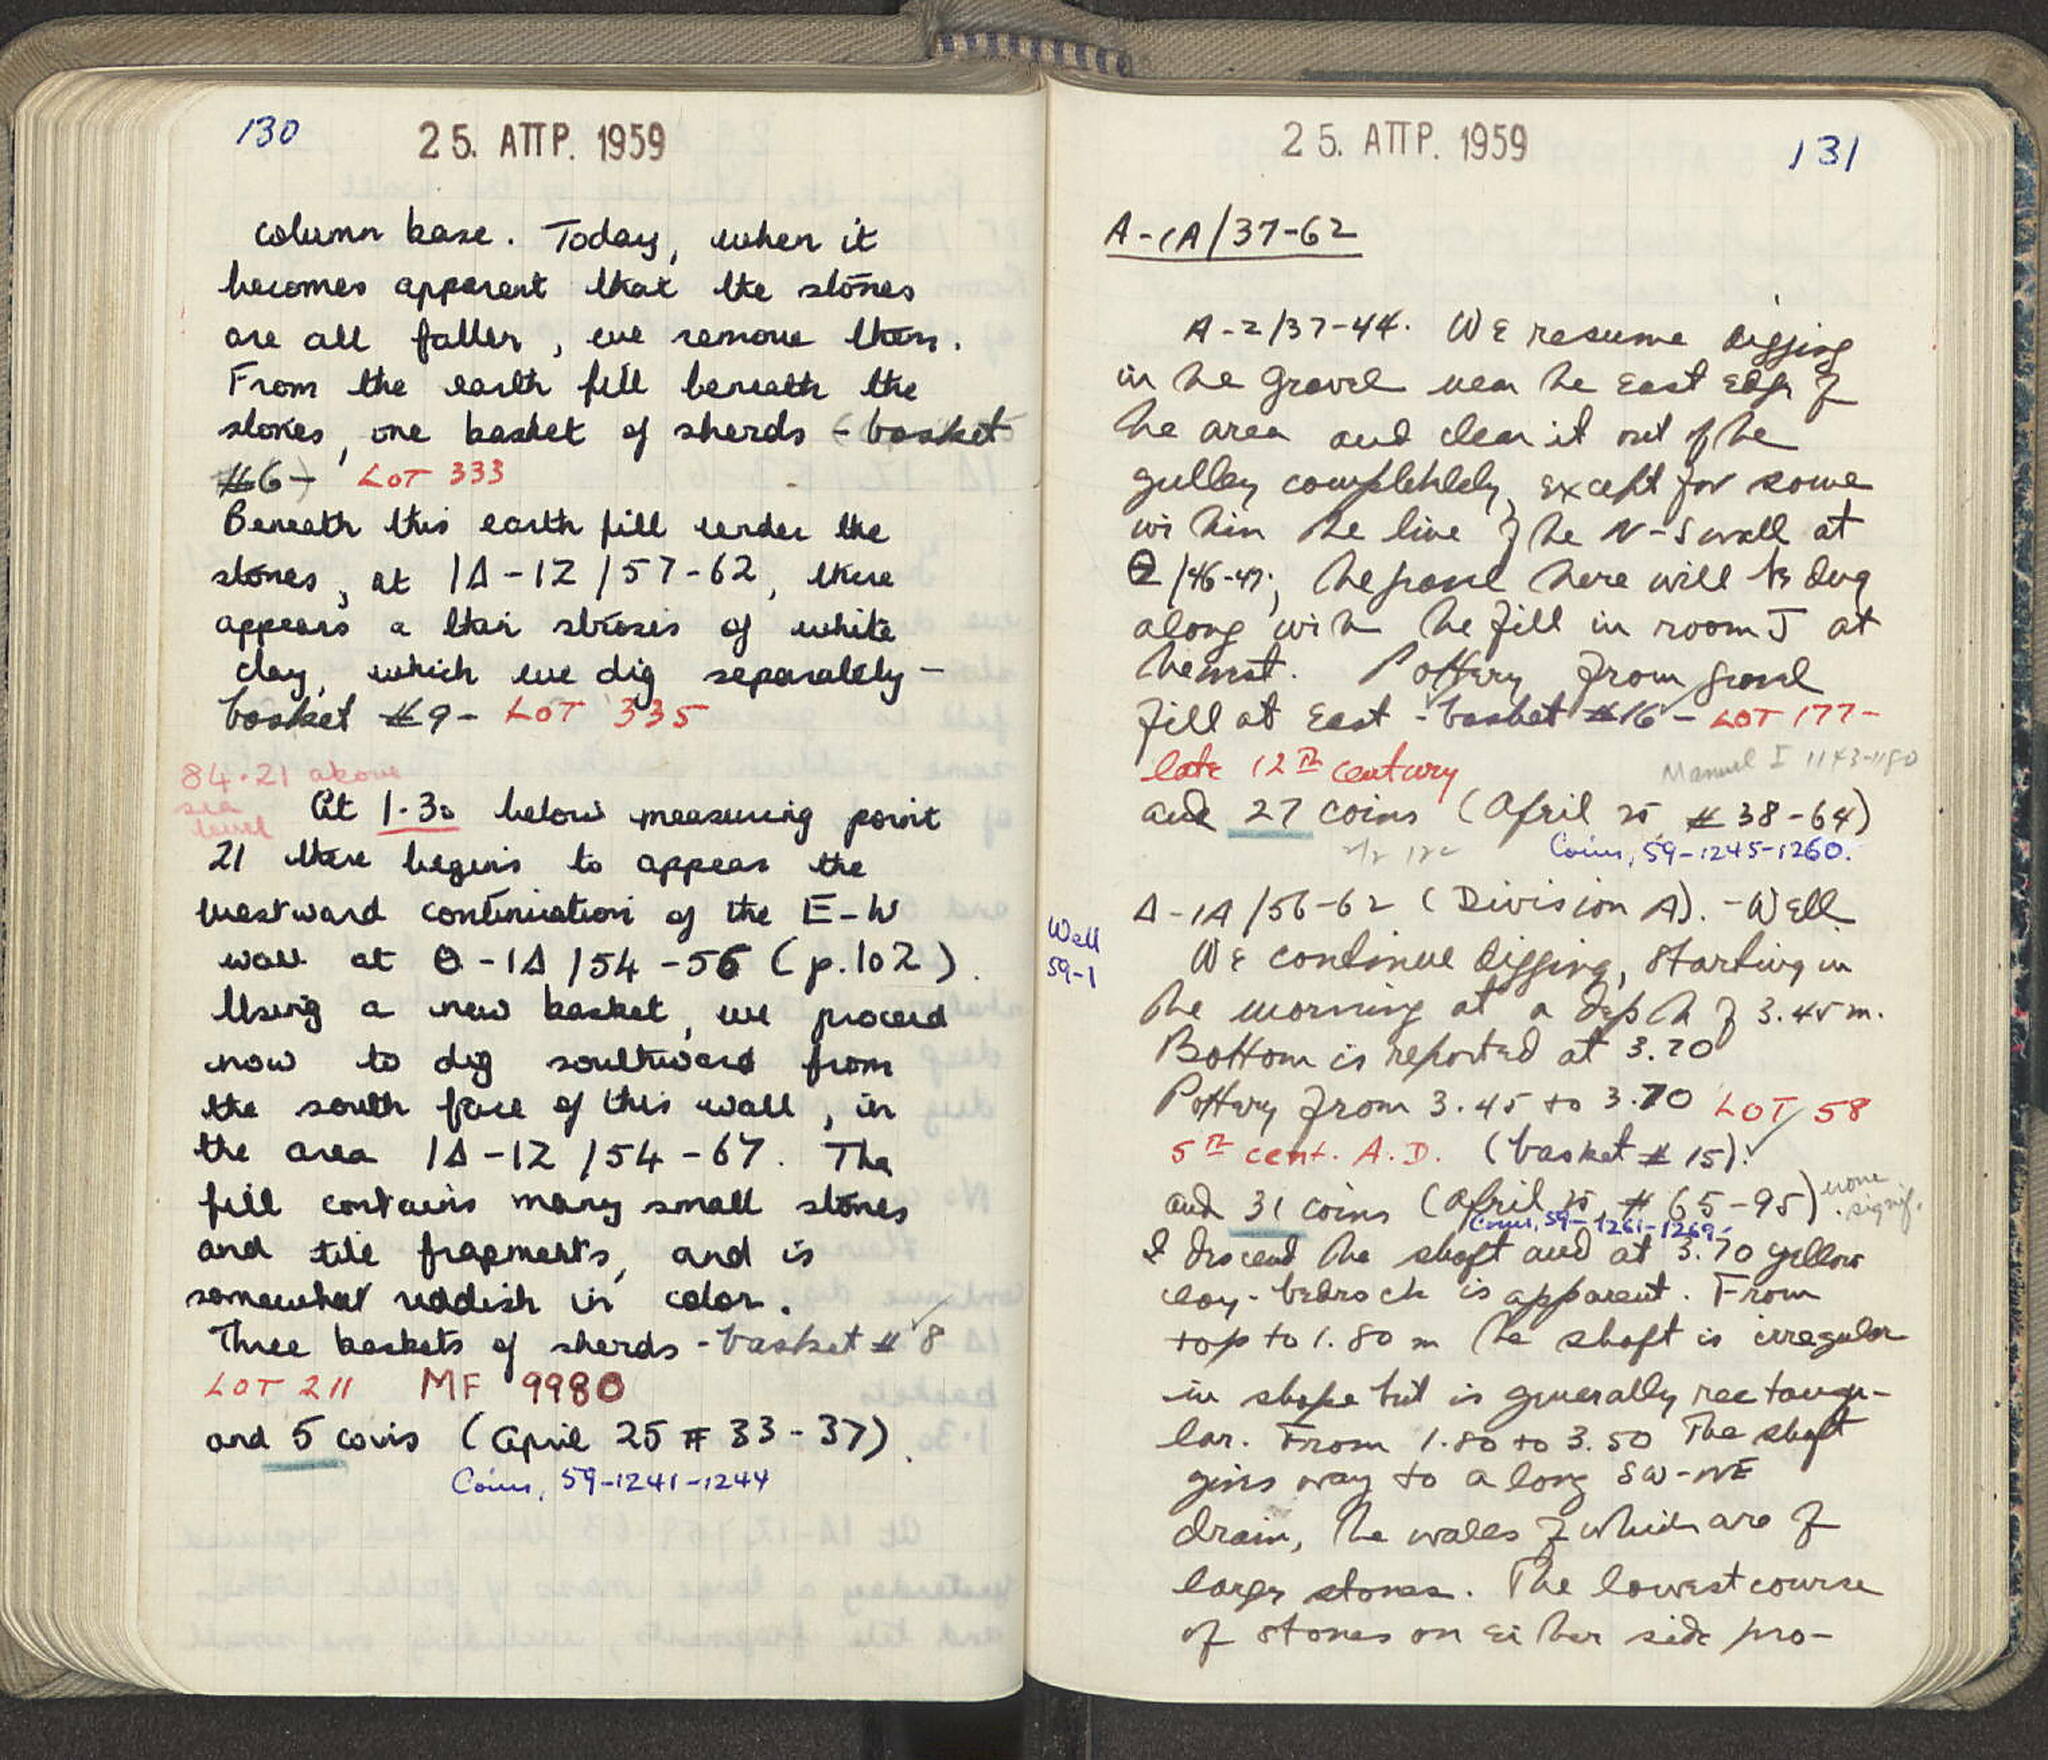 130
25. ΑΠΡ. 1959
column base. Today, when it
becomes apparent that the stones
are all fallen, we remove them.
From the earth fill beneath the
stones, one basket of sherds - basket
#6 - LOT 333
Beneath this earth fill under the
stones, at ΙΔ-ΙΖ/57-62, there
appears a thin strosis of white
clay, which we dig separately -
basket #9 - LOT 335
84.21 above
sea
level
At 1.30 below measuring point
21 there begins to appear the
westward continuation of the E-W
wall at Θ-ΙΔ/54-56 (p.102).
Using a new basket, we proceed
now to dig southward from
the south face of this wall, in
the area ΙΔ-ΙΖ/54-67. The
fill contains many small stones
and tile fragments, and is
somewhat reddish in color.
Three baskets of sherds - basket #8
LOT 211 MF 9980
and 5 coins (April 25 #33-37).
Coins, 59-1241-1244
25. ΑΠΡ. 1959
131
A-ΙΔ/37-62
A-Z/37-44. We resume digging
in the gravel near the East edge of
the area and clear it out of the
gulley completely, except for some
within the line of the N-S wall at
Θ/46-47; the gravel here will be dug
along with the fill in room J at
the west. Pottery from gravel
fill at East - basket #16 - LOT 177-
late 12th century
Manuel I 1143-1180
and 27 coins (April 25, #38-64)
Coins, 59-1245-1260.
Δ-ΙΔ/56-62 (Division A). - Well.
Well
59-1
We continue digging, starting in
the morning at a depth of 3.45 m.
Bottom is reported at 3.70
Pottery from 3.45 to 3.70 LOT 58
5th cent. A.D. (basket #15).
and 31 coins (April 25, #65-95). none
signif.
Coins, 59-1261-1269.
I descend the shaft and at 3.70 yellow
clay-bedrock is apparent. From
top to 1.80 m the shaft is irregular
in shape but is generally rectangu-
lar. From 1.80 to 3.50 the shaft
gives way to a long SW-NE
drain, the walls of which are of
large stones. The lowest course
of stones on either side pro-